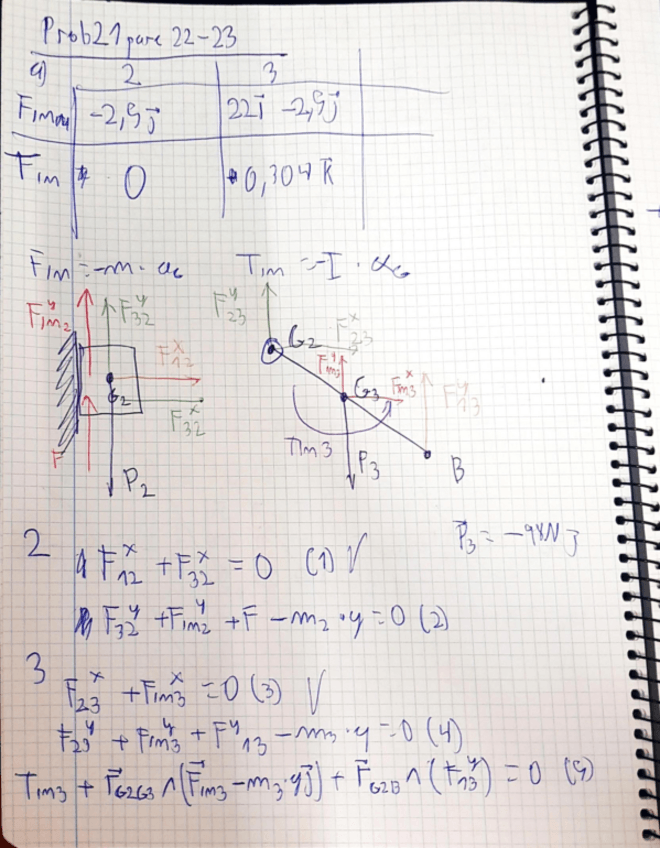 Prob21 parc 22-23
a) 2 3
Fimou -2,9j⃗ 22i⃗ -2,9j⃗
Tim 0 0,304 k⃗
Fim = -m · aG Tim = -I · αG
F^y_im2 F^y_32 F^y_23 F^x_23
G2 F^y_im3
F^x_12 G3 F^x_im3 F^y_13
G2 F^x_32
F Tim3
P2 P3 B
P⃗3 = -9,8N j
2 F^x_12 + F^x_32 = 0 (1) V
F^y_32 + F^y_im2 + F - m2 · g = 0 (2)
3 F^x_23 + F^x_im3 = 0 (3) V
F^y_23 + F^y_im3 + F^y_13 - m3 · g = 0 (4)
Tim3 + r⃗G2G3 ∧ (F⃗im3 - m3 · g j⃗) + r⃗G2B ∧ (F^y_13) = 0 (5)